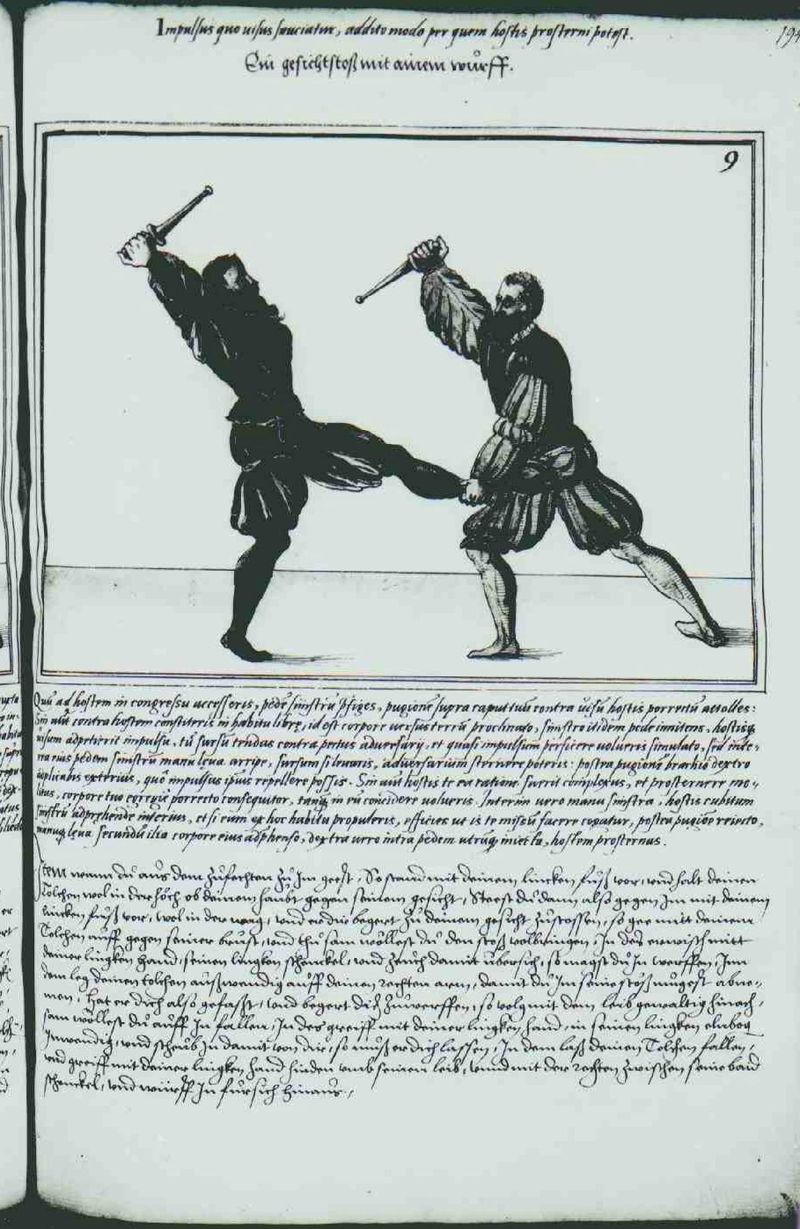 Impulsus quo uisus sauciatur, addito modo per quem hostis prosterni potest.
194
Ein gesichtstoß mit ainem wurff.
9
Quũ ad hostem in congressu accesseris, pedẽ sinistrũ p̃figes, pugionẽ supra caput tuũ contra uisũ hostis porrectũ attolles:
Sin aũt contra hostem constiteris in habitu libre, id est corpore uersus terrã proclinato, sinistro itidem pede innitens, hostisq;
uisum adpetierit impulsu, tũ sursũ tendas contra pectus aduersarij, et quasi impulsum perficere uolueris simulato, sed inte-
rea eius pedem sinistrũ manu leua arripe, sursum si leuaris, aduersarium sternere poteris: postea pugionẽ brachio dextro
adplicabis exterius, quo impulsus ipsius repellere possis. Sin aũt hostis te ea ratione fuerit complexus, et prosternere mo-
litus, corpore tuo porrecto consequitor, tanq̃ in eũ concidere uolueris. Interim uero manu sinistra, hostis cubitum
sinistrũ adprehende interius, et si eum ex hoc habitu propuleris, efficies ut is te missũ facere cogatur, postea pugiõe reiecto,
manuq; leua secundũ ilia corpore eius adphenso, dextra uero intra pedem utrũq; miecta, hostem prosternas.
Item wann du aus dem zufechten zu Im geest, So stand mit deinem lincken fuß vor, vnd halt deinen
Tolchen wol in der höch ob deinem haubt gegen seinem gesicht, Steest du dann also gegen Im mit deinem
lincken fuß vor, wol in der wag, vnd er dir begert zu deinem gesicht zustossen, so gee mit deinem
Tolchen auff gegen seiner brust, vnd thu sam wöllest du den stoß volbringen, In des erwisch mit
deiner lingken hand, seinen lingken schenckel, vnd zeuch damit übersich, so magst du In werffen, Inn
dem leg deinen tolchen außwendig auff deinen rechten arm, damit du Im seine stöß mugest abne-
men, Hat er dich also gefasst, vnd begert dich zuwerffen, so volg mit dem leib gewaltig hinach,
sam wöllest du auff In fallen, In des greiff mit deiner lingken hand, in seinen lingken elnbog
Inwendig, vnd scheub In damit von dir, so muß er dich lassen, In dem laß deinen Tolchen fallen,
vnd greiff mit deiner lingken hand hinden vmb seinen leib, vnnd mit der rechten zwischen seine baid
schenckel, vnd würff In fürsich hinaus,